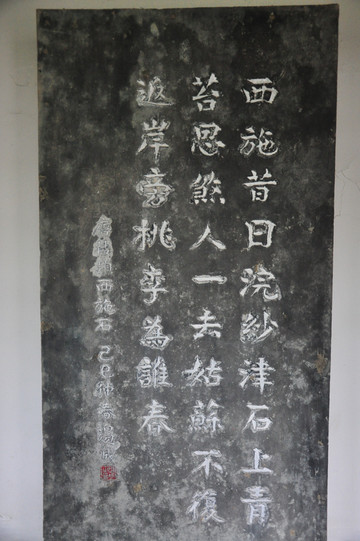 西施昔日浣紗津石上青
苔思煞人一去姑蘇不復
返岸旁桃李為誰春
西施石 己巳仲春